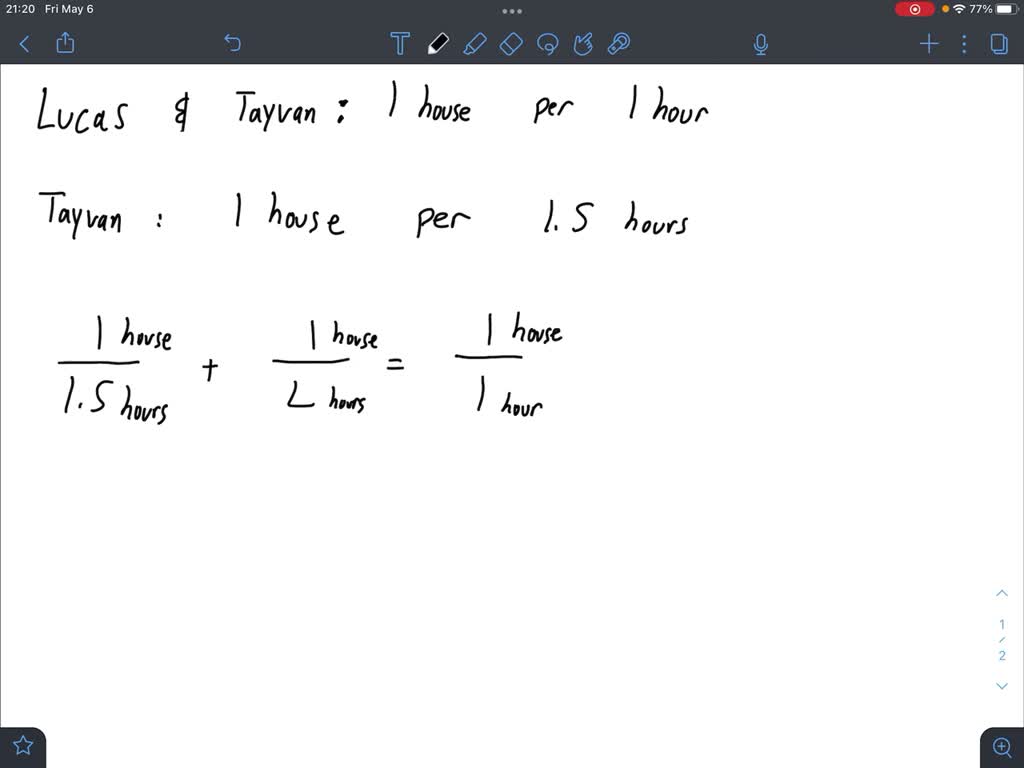 21:20 Fri May 6 77%
Lucas & Tayvan: 1 house per 1 hour
Tayvan: 1 house per 1.5 hours
1 house 1 house 1 house
+ =
1.5 hours L hours 1 hour
1
/
2